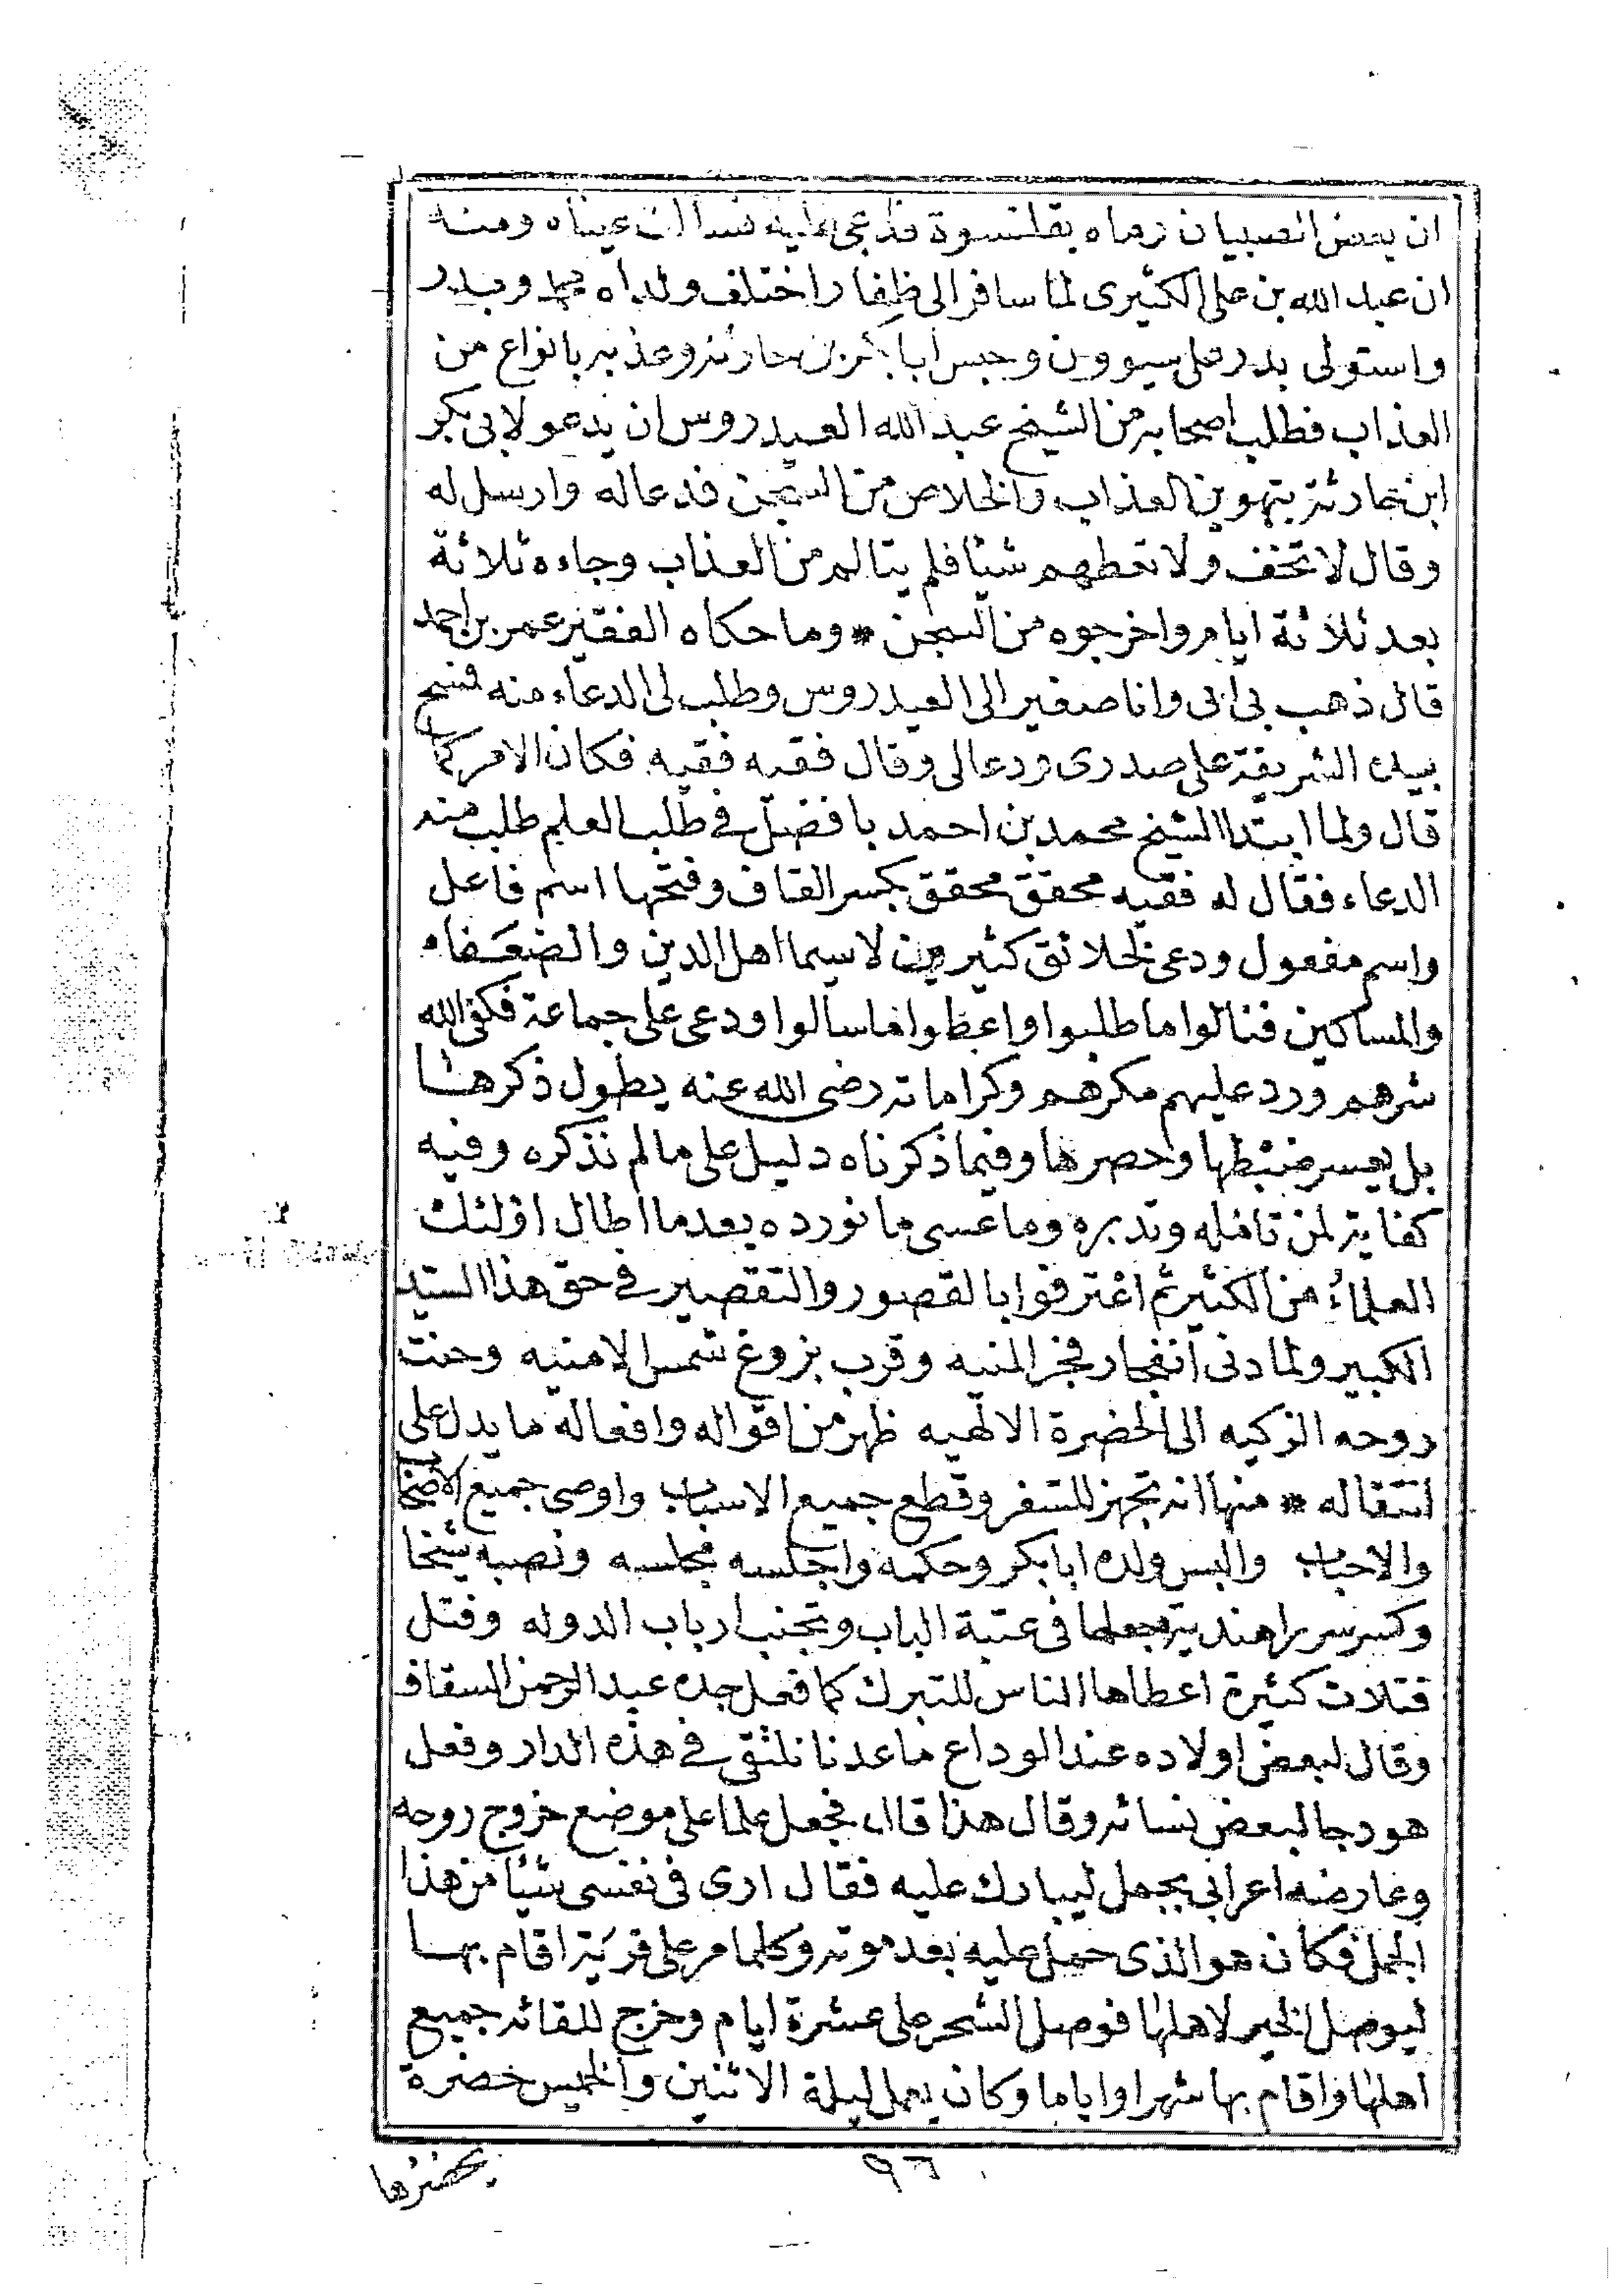 ان بعض الصبيان رماه بقلنسوة فدعى عليه فسالت عيناه ومنه
ان عبد الله بن على الكثيرى لما سافر الى ظفار اختلف ولداه محمد وبدر
واستولى بدر على سيوون وحبس ابا بكر بن حارثة وعذبه بانواع من
العذاب فطلب اصحابه من الشيخ عبد الله العيدروس ان يدعو لابى بكر
ابن حارثة بتهوين العذاب والخلاص من السجن فدعا له وارسل له
وقال لا تخف ولا تعطهم شيئا فلم يتالم من العذاب وجاءه ثلاثة
بعد ثلاثة ايام واخرجوه من السجن * وما حكاه الفقير عمر بن احمد
قال ذهب بى ابى وانا صغير الى العيدروس وطلب لى الدعاء منه فمسح
بيده الشريفة على صدرى ودعا لى وقال فقيه فقيه فكان الامر كما
قال ولما ابتدا الشيخ محمد بن احمد بافضل في طلب العلم طلب منه
الدعاء فقال له فقيه محقق محقق بكسر القاف وفتحها اسم فاعل
واسم مفعول ودعى لخلائق كثيرين لاسيما اهل الدين والضعفاء
والمساكين فنالوا ما طلبوا واعطوا ما سالوا ودعى على جماعة فكفى الله
شرهم ورد عليهم مكرهم وكراماته رضى الله عنه يطول ذكرها
بل يعسر ضبطها وحصرها وفيما ذكرناه دليل على ما لم نذكره وفيه
كفاية لمن تامله وتدبره وما عسى ما نورده بعد ما اطال اولئك
العلماء من الكثير ثم اعترفوا بالقصور والتقصير في حق هذا السيد
الكبير ولما دنى انفجار فجر المنيه وقرب بزوغ شمس الامنيه وحنت
روحه الزكيه الى الحضرة الالهيه ظهر من اقواله وافعاله ما يدل على
انتقاله * منها انه تجهز للسفر وقطع جميع الاسباب واوصى جميع الاصحاب
والاحباب والبس ولده ابا بكر وحكمه واجلسه مجلسه ونصبه شيخا
وكسر سريرا هندية وجعلها فى عتبة الباب وتجنب ارباب الدوله وفتل
فتلات كثيرة اعطاها الناس للتبرك كما فعل جده عبد الرحمن السقاف
وقال لبعض اولاده عند الوداع ما عدنا نلتقى في هذه الدار وفعل
هودجا لبعض نسائه وقال هذا قال فجعل علما على موضع خروج روحه
وعارضه اعرابى بجمل ليبارك عليه فقال ارى فى نفسى شيئا من هذا
الجمل فكان هو الذى حمل عليه بعد موته وكلما مر على قرية اقام بها
ليوصل الخير لاهلها فوصل الشحر على عشرة ايام وخرج للقائه جميع
اهلها واقام بها شهرا واياما وكان يعمل ليلة الاثنين والخميس حضرة
٩٦
يحضرها